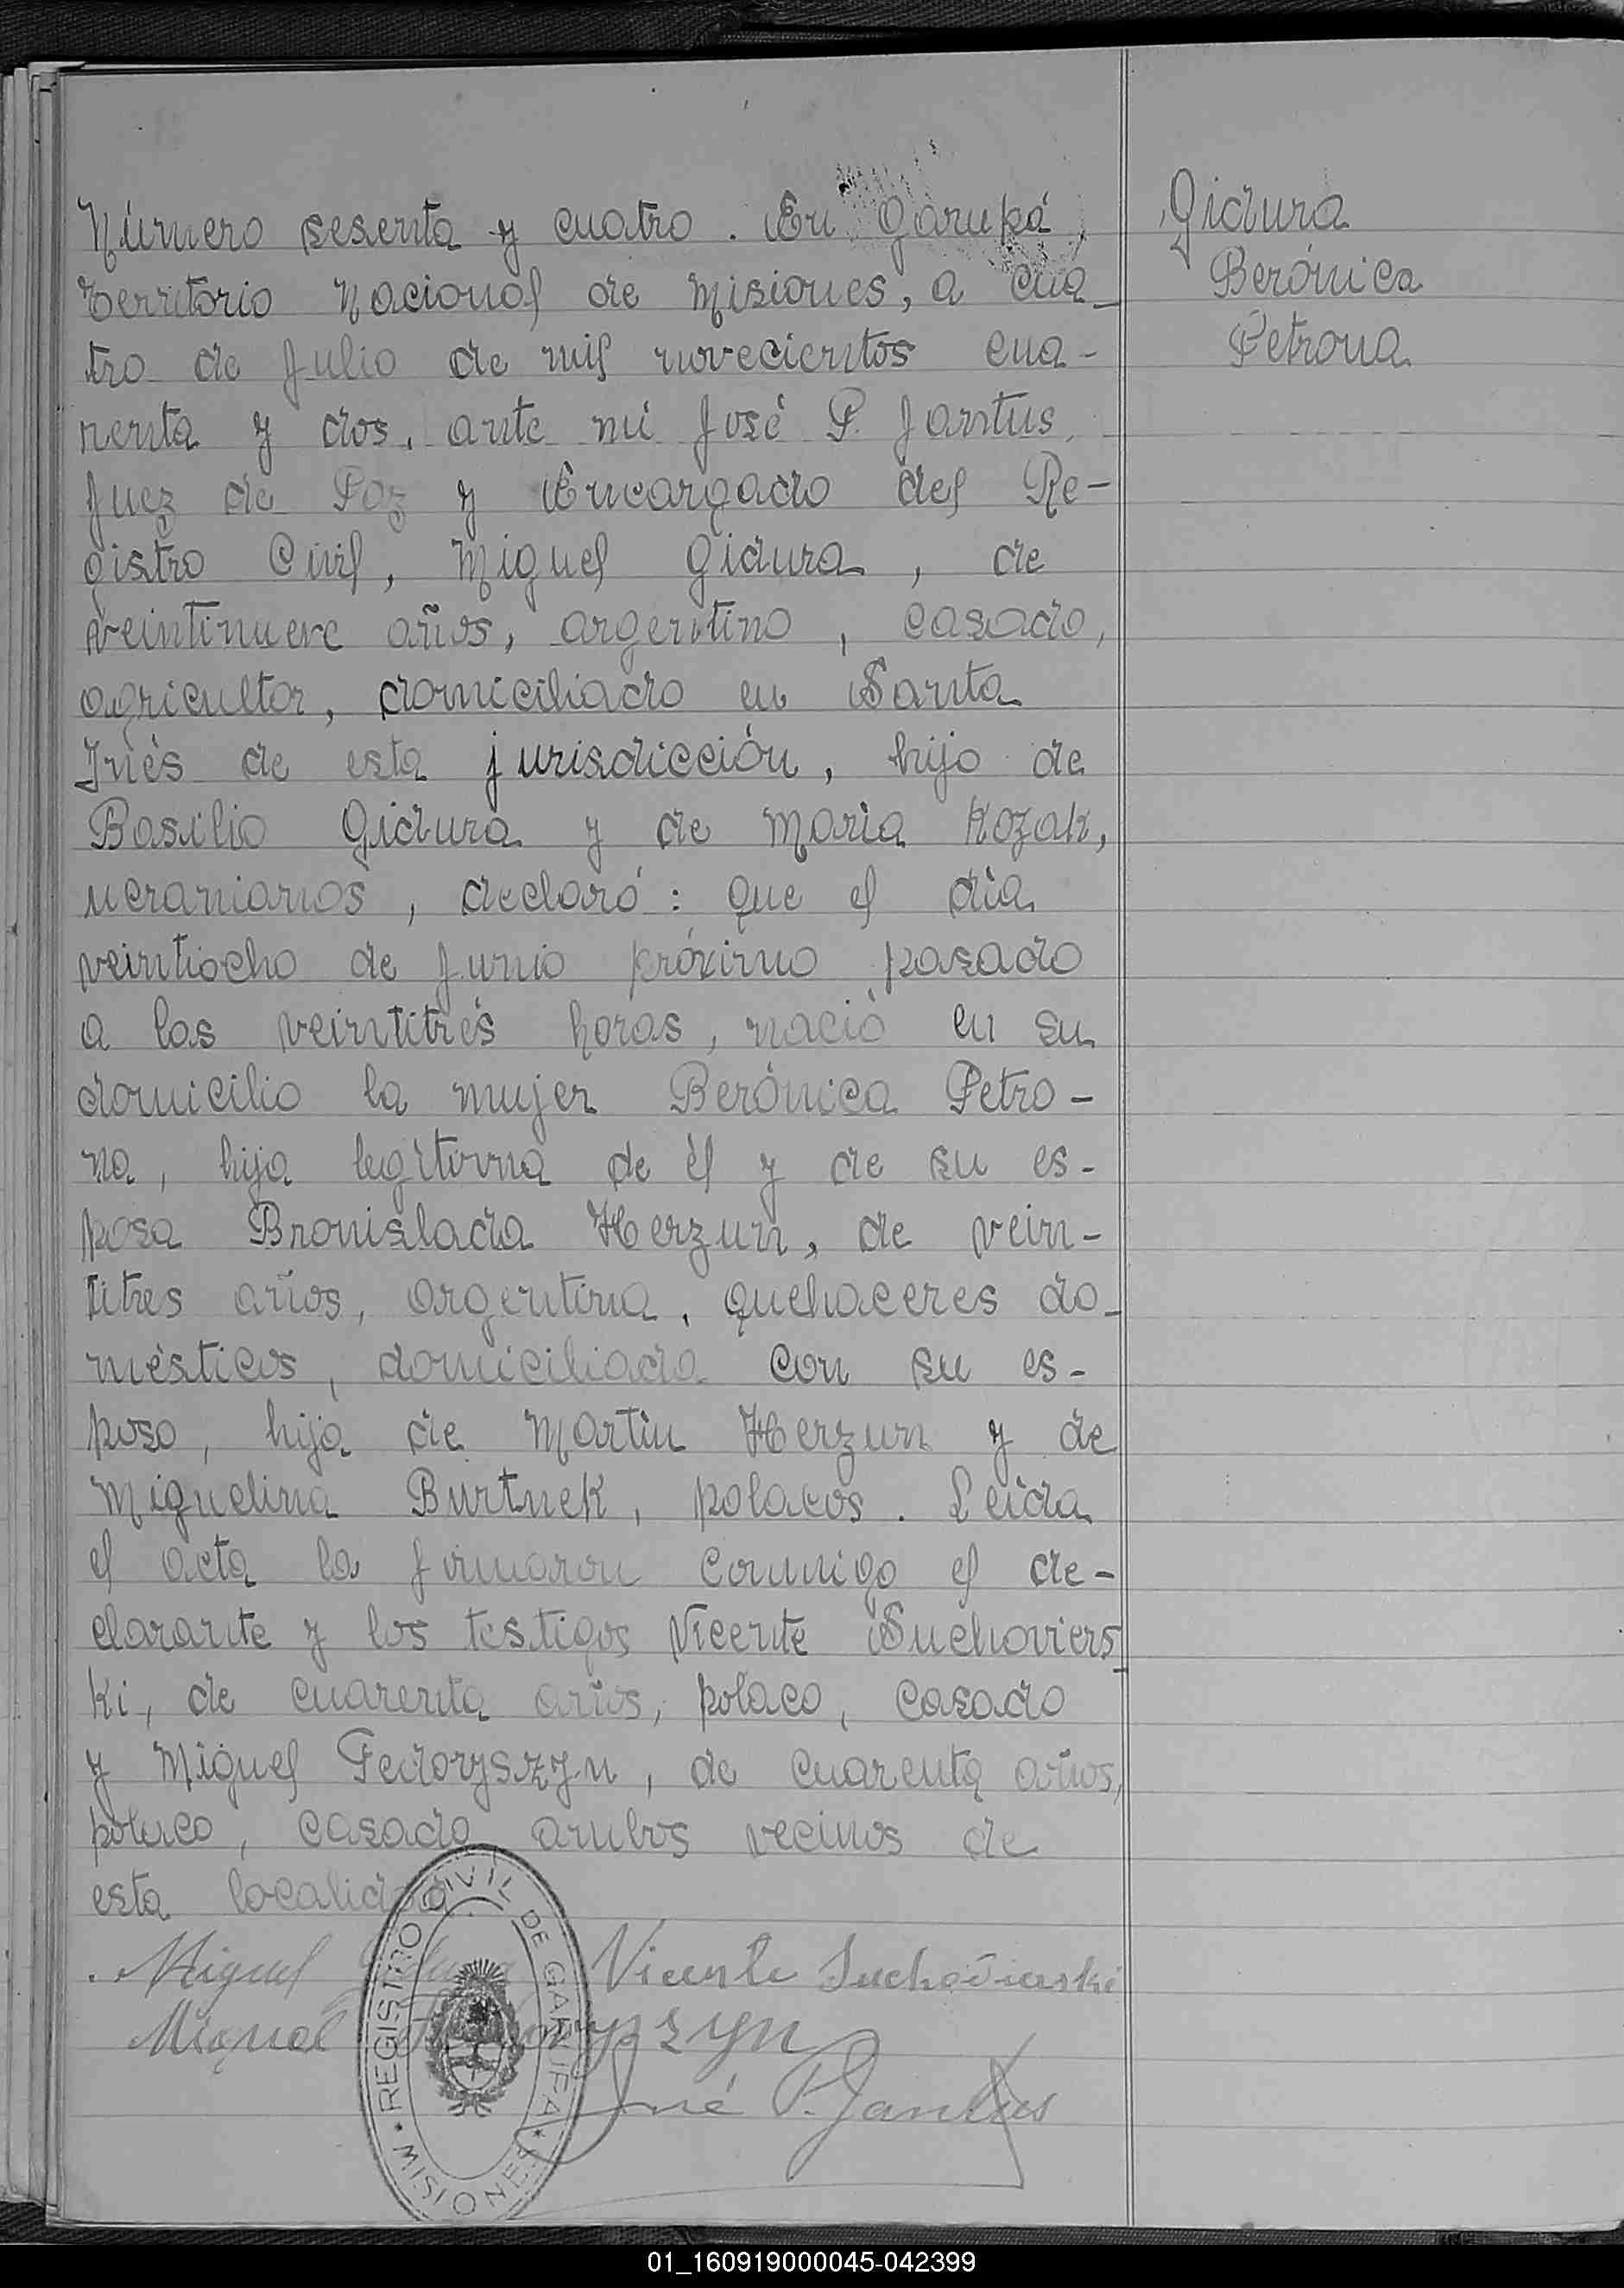 Número sesenta y cuatro. En Garupá,
territorio Nacional de Misiones, a cua-
tro de Julio de mil novecientos cua-
renta y dos, ante mi José P. Jantus,
Juez de Paz y Encargado del Re-
gistro Civil, Miguel Gidura, de
veintinueve años, argentino, casado,
agricultor, domiciliado en Santa
Inés de esta jurisdicción, hijo de
Basilio Gidura y de Maria Kozak,
ucranianos, declaró: que el dia
veintiocho de Junio próximo pasado
a las veintitrés horas, nació en su
domicilio la mujer Berónica Petro-
na, hija legítima de él y de su es-
posa Bronislada Herzun, de vein-
titres años, argentina, quehaceres do-
mésticos, domiciliada con su es-
poso, hija de Martin Herzun y de
Miguelina Burtnek, polacos. Leida
el acta la firmaron conmigo el de-
clarante y los testigos Vicente Suchoviers-
ki, de cuarenta años, polaco, casado
y Miguel Fedoryszyn, de cuarenta años,
polaco, casado, ambos vecinos de
esta localidad.
Miguel Gidura Vicente Suchovierski
Miguel Fedoryszyn
José P. Jantus
REGISTRO CIVIL DE GARUPA
* MISIONES *
Gidura
Berónica
Petrona
01_160919000045-042399